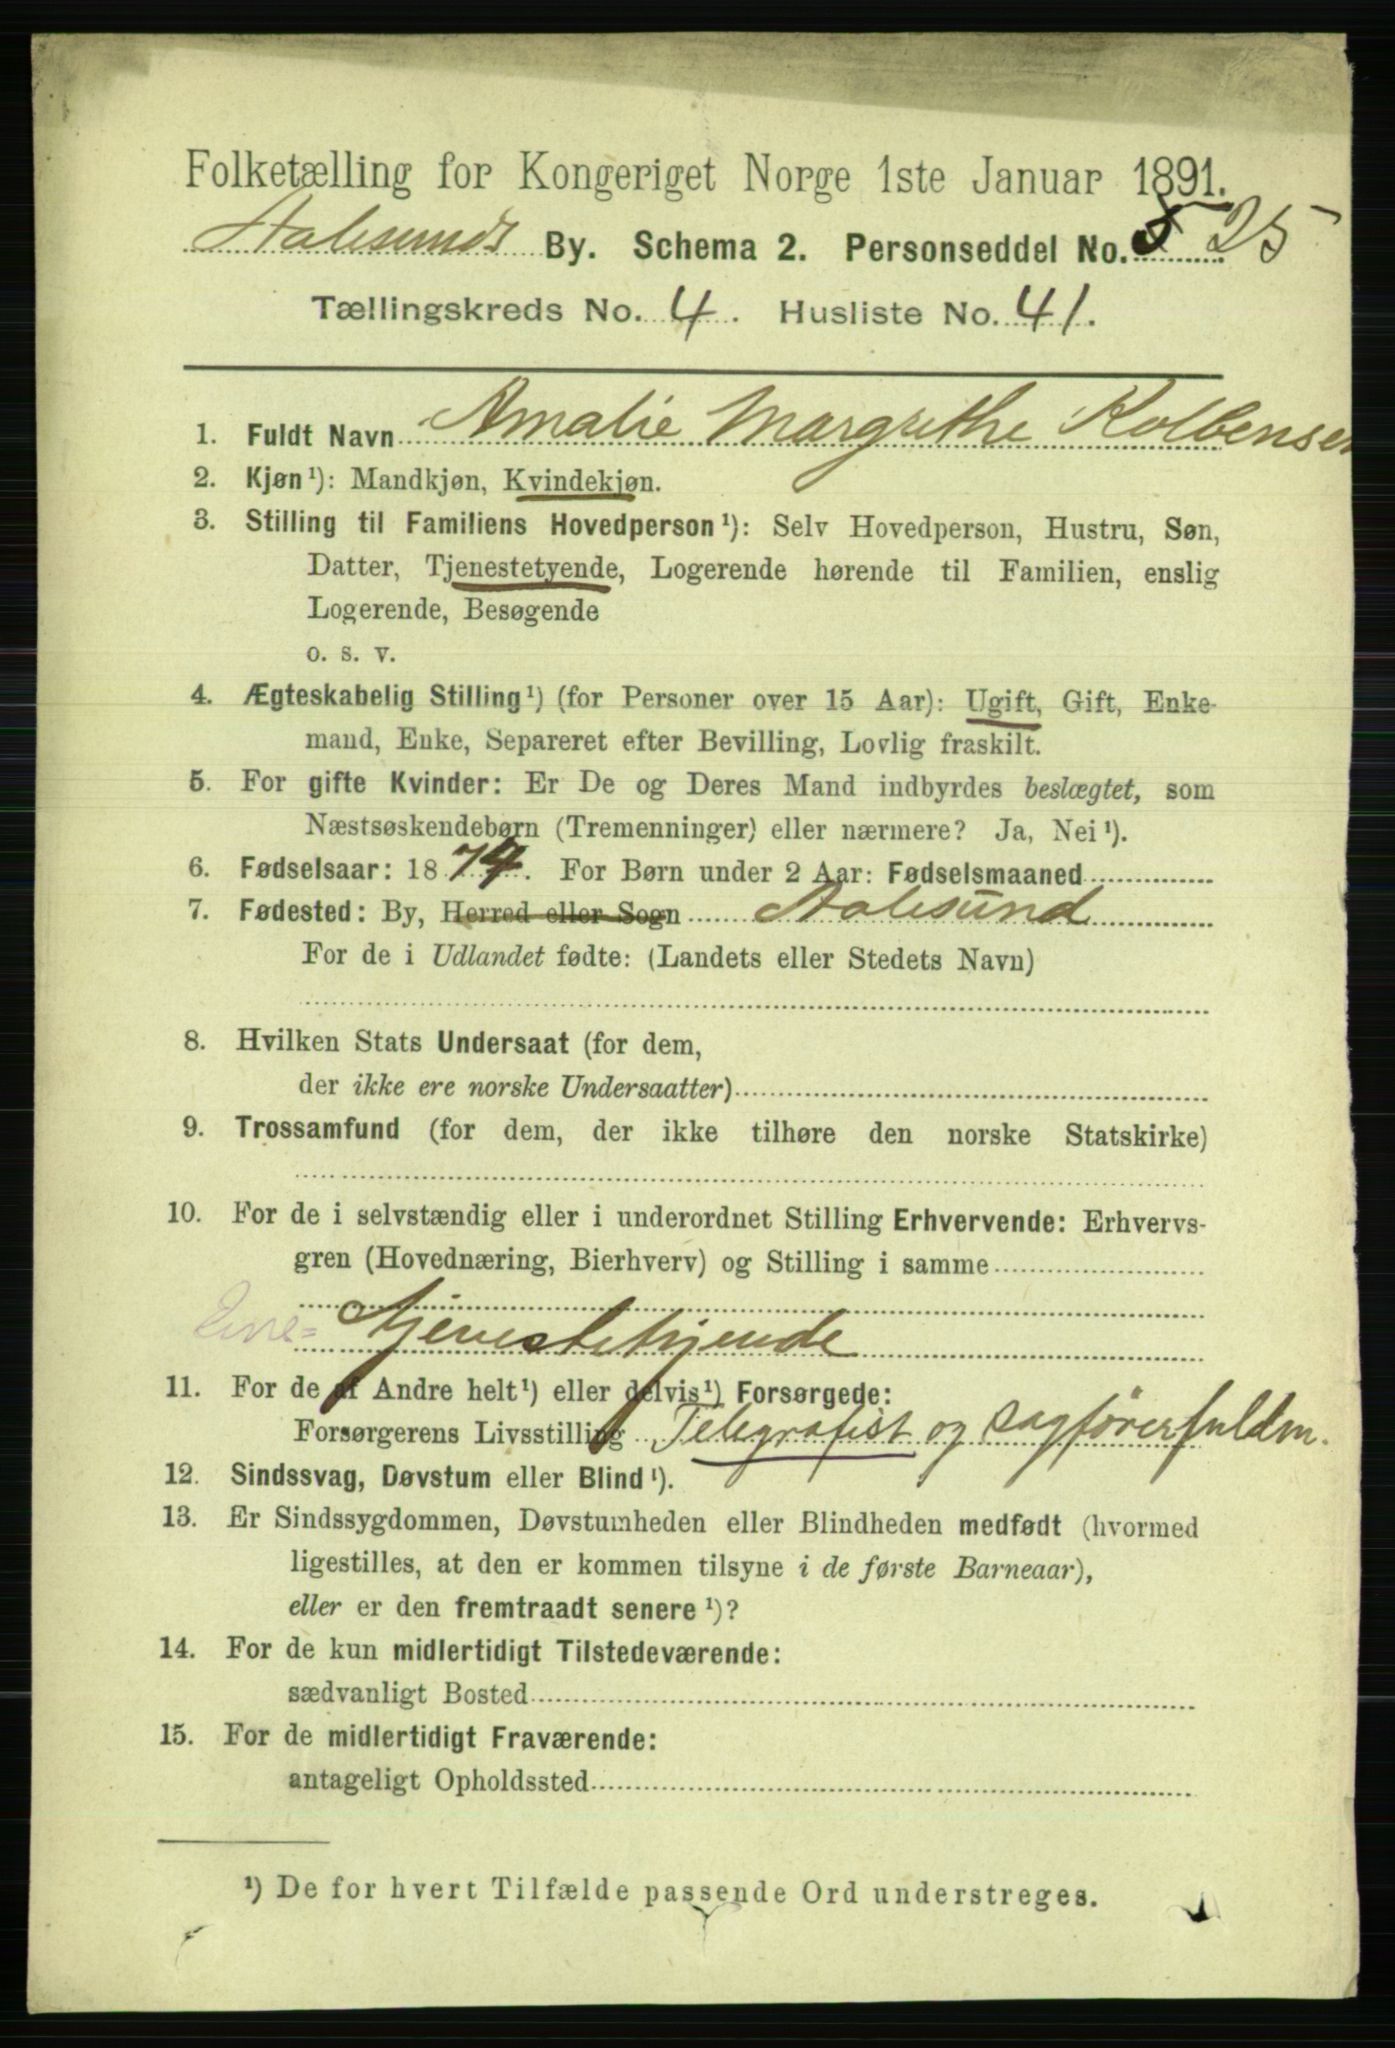 Folketælling for Kongeriget Norge 1ste Januar 1891.
Aalesunds By. Schema 2. Personseddel No. 5 25
Tællingskreds No. 4. Husliste No. 41.
1. Fuldt Navn Amalie Margrethe Kolbensen
2. Kjøn¹): Mandkjøn, Kvindekjøn.
3. Stilling til Familiens Hovedperson¹): Selv Hovedperson, Hustru, Søn,
Datter, Tjenestetyende, Logerende hørende til Familien, enslig
Logerende, Besøgende
o. s. v.
4. Ægteskabelig Stilling¹) (for Personer over 15 Aar): Ugift, Gift, Enke-
mand, Enke, Separeret efter Bevilling, Lovlig fraskilt.
5. For gifte Kvinder: Er De og Deres Mand indbyrdes beslægtet, som
Næstsøskendebørn (Tremenninger) eller nærmere? Ja, Nei¹).
6. Fødselsaar: 1874. For Børn under 2 Aar: Fødselsmaaned
7. Fødested: By, Herred eller Sogn Aalesund
For de i Udlandet fødte: (Landets eller Stedets Navn)
8. Hvilken Stats Undersaat (for dem,
der ikke ere norske Undersaatter)
9. Trossamfund (for dem, der ikke tilhøre den norske Statskirke)
10. For de i selvstændig eller i underordnet Stilling Erhvervende: Erhvervs-
gren (Hovednæring, Bierhverv) og Stilling i samme
Ene= Tjenestetyende
11. For de af Andre helt¹) eller delvis¹) Forsørgede:
Forsørgerens Livsstilling Telegrafist og sagførerfuldm.
12. Sindssvag, Døvstum eller Blind¹).
13. Er Sindssygdommen, Døvstumheden eller Blindheden medfødt (hvormed
ligestilles, at den er kommen tilsyne i de første Barneaar),
eller er den fremtraadt senere¹)?
14. For de kun midlertidigt Tilstedeværende:
sædvanligt Bosted
15. For de midlertidigt Fraværende:
antageligt Opholdssted
¹) De for hvert Tilfælde passende Ord understreges.